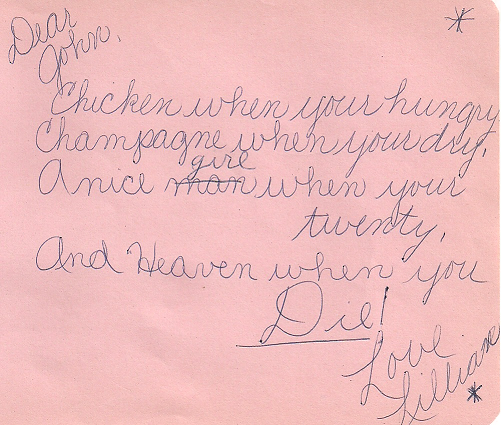 Dear
John,
Chicken when your hungry
Champagne when your dry,
girl
A nice man when your
twenty,
And Heaven when you
Die!
Love
Lilliane